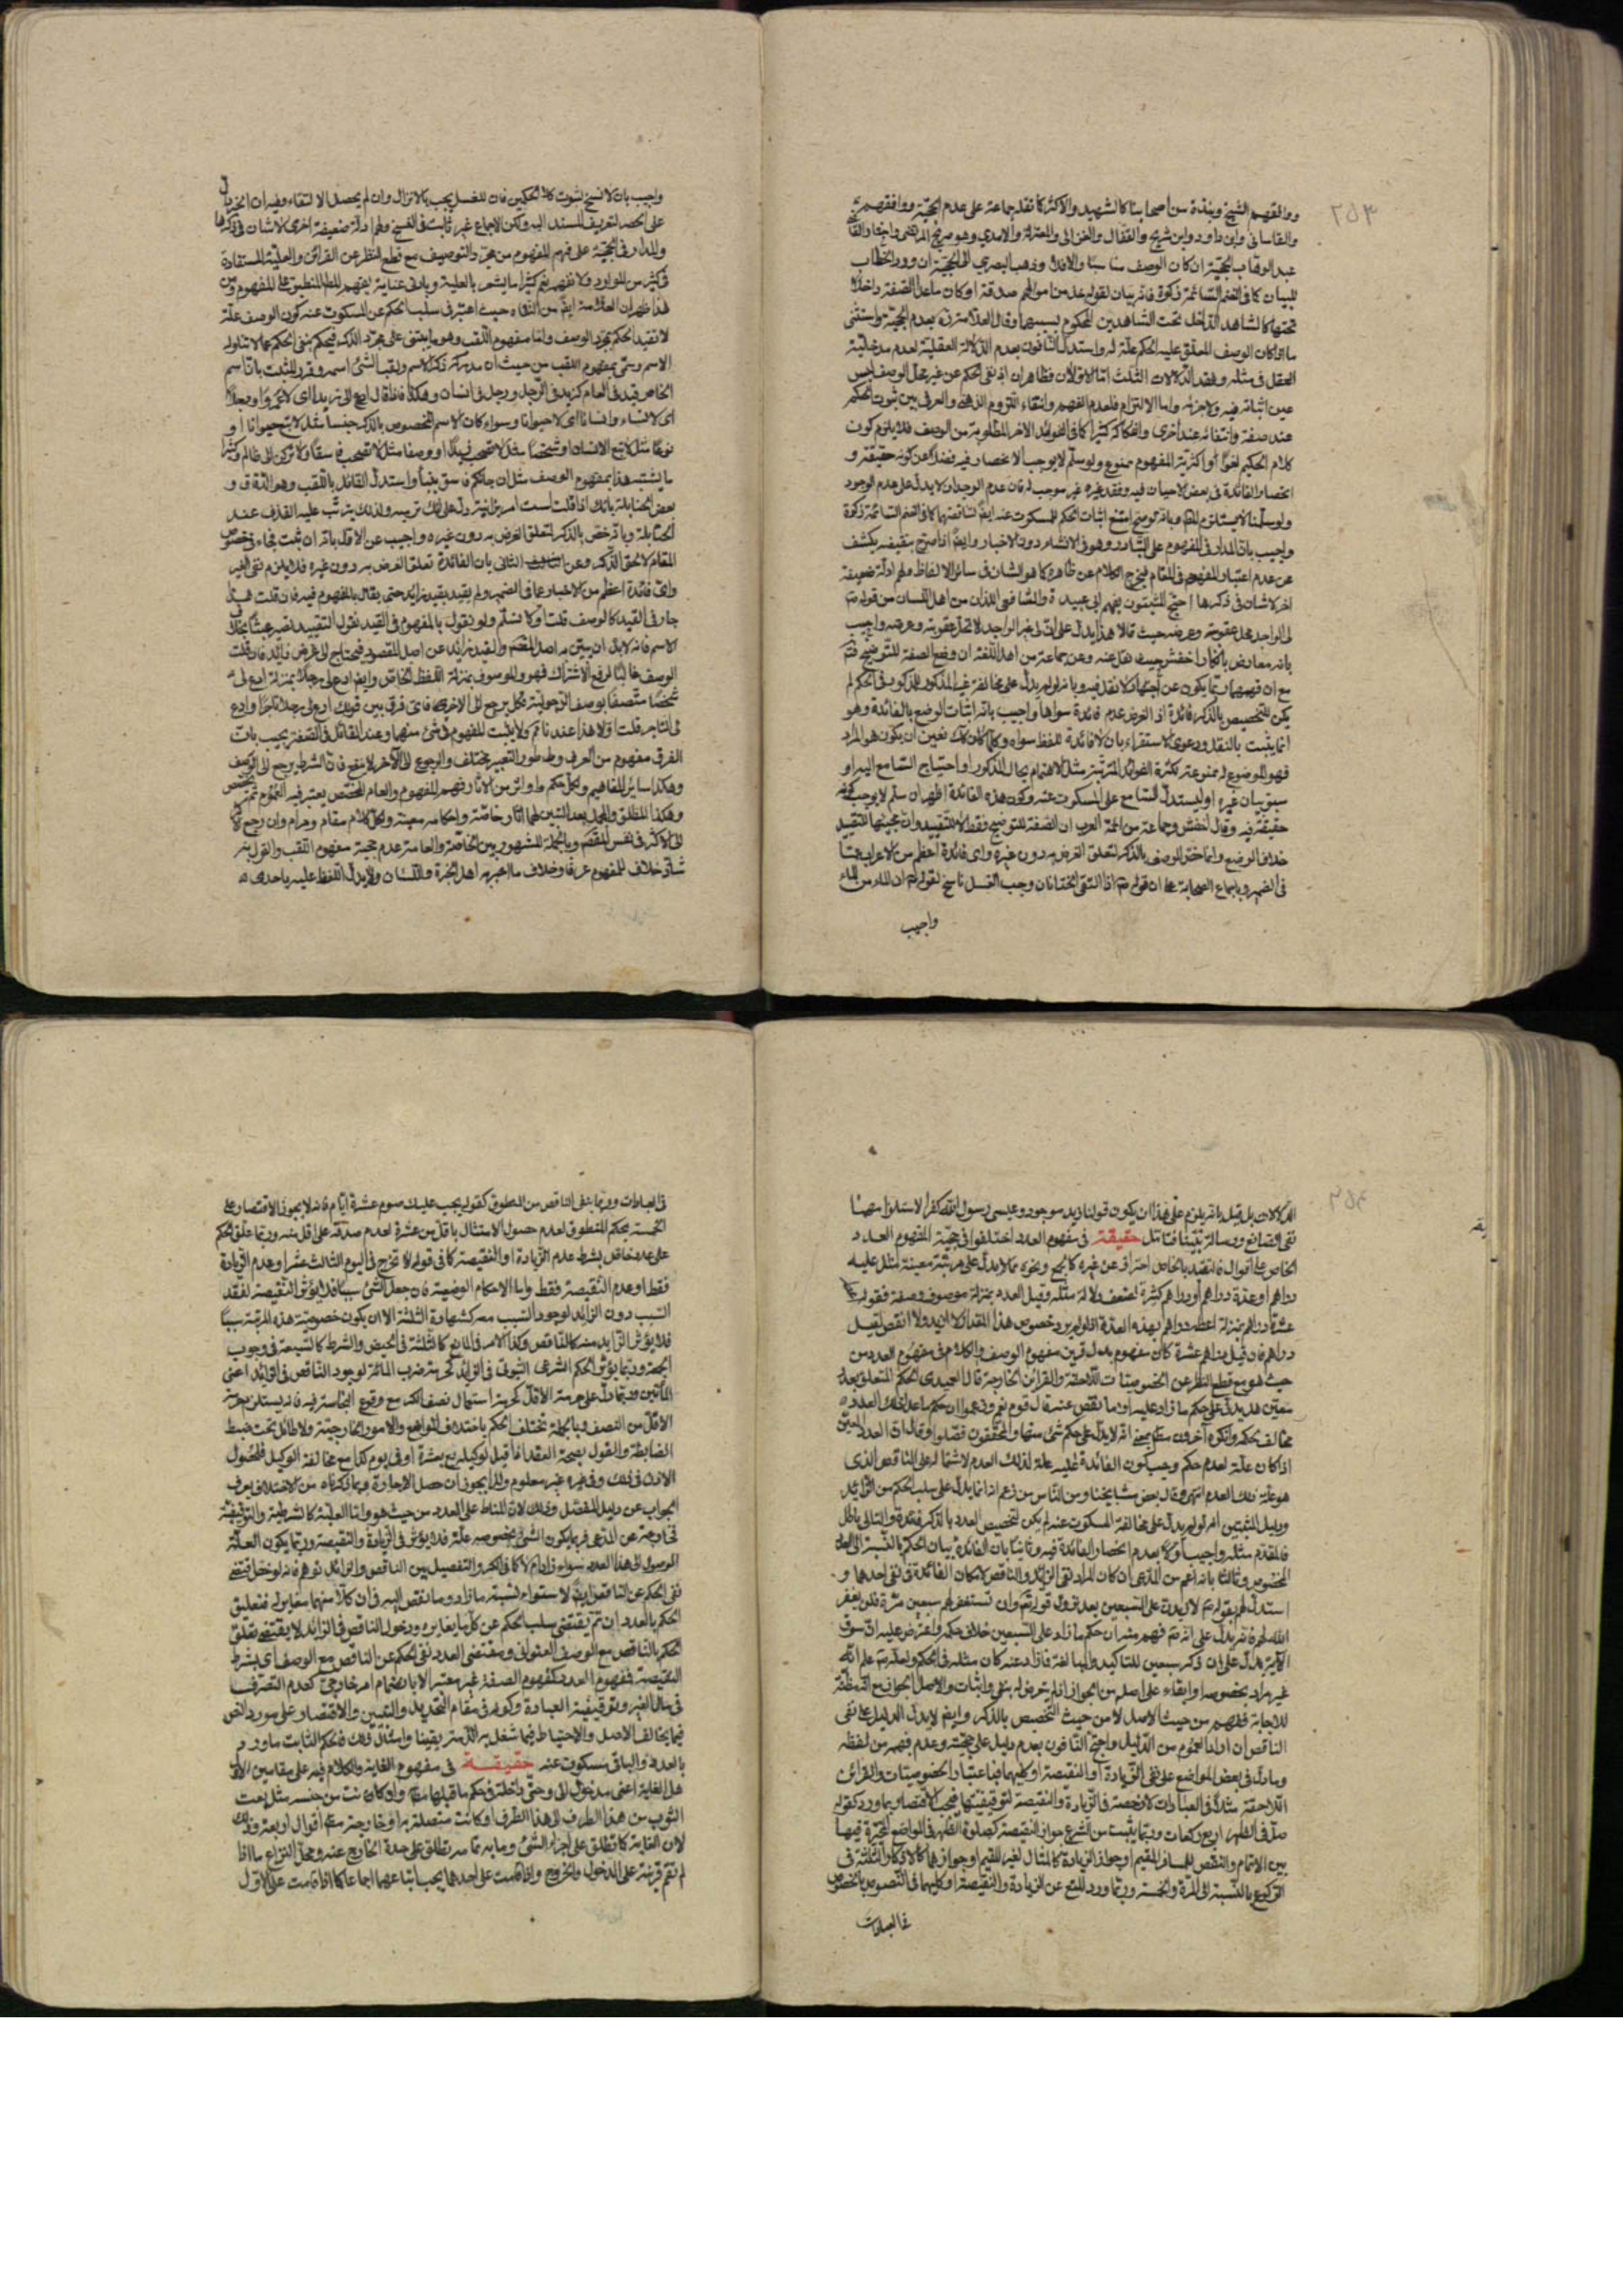 ووافقهم الشيخ ونبذة من أصحابنا كالشهيد والأكثر كما نقله جماعة على عدم الحجية ووافقهم
والقاساني وابن داود وابن شريح والقفال والغزالي والمعتزلة والآمدي وهو صريح المرتضى واختار القاضي
عبد الوهاب الحجية ان كان الوصف مناسبا والا فلا وذهب البصري الى الحجية ان ورد الخطاب
للبيان كما في الغنم السائمة زكوة فانه بيان لقوله خذ من اموالهم صدقة او كان ما عدا الصفة داخلا
تحتها كالشاهد الداخل تحت الشاهدين المحكوم بسببهما وقال العلامة ره بعدم الحجية واستثنى
ما اذا كان الوصف المعلق عليه الحكم علة له واستدل النافون بعدم الدلالة العقلية لعدم مدخلية
العقل في مثله وفقد الدلالات الثلث اما الاولان فظاهر ان اذ نفى الحكم عن غير محل الوصف ليس
عين اثباته فيه ولا جزئه واما الالتزام فلعدم الفهم وانتفاء اللزوم الذهني والعرفي بين ثبوت الحكم
عند صفة وانتفائه عند أخرى
كلام الحكيم لغوا أو اكثرية المفهوم ممنوع ولو سلم لا يوجب الانحصار فيه فضلا عن كونه حقيقة و
انحصار الفائدة في بعض الاحيان فيه وفقد غيره غير موجب له فان عدم الوجدان لا يدل على عدم الوجود
امتنع اثبات الحكم للمسكوت عنه ايضا لمناقضتها كما في الغنم السائمة زكوة
واجيب بان المدار في المفهوم على التبادر وهو في الانشاء دون الاخبار وايضا اذا صرح بنقيضه يكشف
عن عدم اعتبار المفهوم في المقام فيخرج الكلام عن ظاهره كما هو الشان في سائر الالفاظ ولهم ادلة ضعيفة
اخر لا شان في ذكرها احتج المثبتون بفهم ابي عبيدة والشافعي اللذان من اهل اللسان من قوله ص
لي الواجد يحل عقوبته وعرضه حيث قالا هذا يدل على ان لي غير الواجد لا تحل عقوبته وعرضه واجيب
بانه معارض بانكار اخفش حيث نقل عنه وعن جماعة من اهل اللغة ان وضع الصفة للتوضيح فقط
مع ان فهمهما ربما يكون عن اجتهاد لا نقل فيه وبانه لو لم يدل على مخالفة غير المذكور للمذكور في الحكم لم
يكن للتخصيص بالذكر فائدة اذ الفرض عدم فائدة سواها واجيب بانه اثبات الوضع بالفائدة وهو
انما يثبت بالنقل ودعوى الاستقراء بان لا فائدة للفظ سواه وكلما كان كك تعين ان يكون هو المراد
فهو الموضوع له ممنوعة لكثرة الفوائد المترتبة مثل الاهتمام بحال المذكور او احتياج السامع اليه او
سبق بيان غيره او ليستدل السامع على المسكوت عنه وكون هذه الفائدة اظهر ان سلم لا يوجب كونه
حقيقة فيه وقال اخفش وجماعة من ائمة العرب ان الصفة للتوضيح فقط لا للتقييد وان مجيئها للتقييد
خلاف الوضع وانما خص الوصف بالذكر لتعلق الغرض به دون غيره واي فائدة اعظم من
وباجماع الصحابة على ان قوله ص اذا التقى الختانان وجب الغسل ناسخ لقوله ص ان الماء من الماء
واجيب
واجيب بان لا نسخ لثبوت كلا الحكمين فان الغسل يجب بالانزال وان لم يحصل الالتقاء وفيه ان الخبر يدل
على الحصر لتعريف المسند اليه ولكن الاجماع غير ثابت في النسخ ولهم ادلة ضعيفة اخرى لا شان في ذكرها
والمدار في الحجية على فهم المفهوم من مجرد التوصيف مع قطع النظر عن القرائن والعلية المستفادة
في كثير من الموارد ولا نفهم نعم كثيرا ما يشعر بالعلية وبادنى عناية يفهم المط المنطبق على المفهوم ومن
هذا ظهر ان العلامة ايضا من النفاة حيث اعتبر في سلب الحكم عن المسكوت عنه كون الوصف علة
لا تقييد الحكم بمجرد الوصف واما مفهوم اللقب وهو ما يبتنى على مجرد الذكر فيحكم بنفي الحكم عما لا تناوله
الاسم وسمى بمفهوم اللقب من حيث ان مدركه ذكر الاسم ولقب الشئ اسمه وقرر المثبت بان اسم
الخاص قيد في العام كزيد في الرجل ورجل في انسان وهكذا فاذا قال ادع الى زيدا اى لا عمروا او رجلا
اى لا نساء وانسانا اى لا حيوانا وسواء كان الاسم المخصوص بالذكر جنسا مثل لا تبع حيوانا او
نوعا مثل لا تبع الانسان او شخصا مثل لا تصحب زيدا او وصفا مثل لا تصحب فاسقا ولا تركن الى ظالم وكثيرا
ما يشتبه هذا بمفهوم الوصف مثل ان جائكم فاسق بنبأ واستدل القائل باللقب وهو الدقاق و
بعض الحنابلة بانك اذا قلت لست امي زانية يدل على انك ترميه ولذلك يترتب عليه القذف عند
الحنابلة وبانه خص بالذكر لتعلق الغرض به دون غيره واجيب عن الاول بانه ان ثبت فجاء في خصوص
المقام لا بمحض الذكر وعن الثاني بان الفائدة تعلق الغرض به دون غيره فلا يلزم نفي الغير
واى فائدة اعظم من الاخبار عما في الضمير ولم يقيد بقيد زايد حتى يقال بالمفهوم فيه فان قلت هذا
جار في القيد كالوصف قلت اولا نسلم ولو نقول بالمفهوم في القيد نقول التقييد يصير عبثا بخلاف
الاسم فانه لابد ان يبين به اصل المقصد والقيد زائد عن اصل المقصود فيحتاج الى غرض زائد فان قلت
الوصف غالبا لرفع الاشتراك فهو والموسوف بمنزلة اللفظ الخاص وايضا ادع لي رجلا بمنزلة ادع لي
شخصا متصفا بوصف الرجولية فكل يرجع الى الاخر فاى فرق بين قولك ادع لي رجلا تاجرا وادع
لي التاجر قلت اولا هذا عندنا تام ولا يثبت المفهوم في شئ منهما وعند القائل في الصفة يجيب بان
الفرق مفهوم من العرف
وهكذا ساير المفاهيم ولكل حكم
وهكذا المطلق والمجمل بعد التبيين لهما اثار خاصة واحكام معينة ولكل كلام مقام ومرام وان رجع كل
الى الاكثر في نفس المقصد وبالجملة المشهور بين الخاصة والعامة عدم حجية مفهوم اللقب والقول به
شاذ خلاف المفهوم عرفا وخلاف ما اعتبره اهل الخبرة واللسان ولا يدل اللفظ عليه باحدى
الدلالات بل قيل بانه يلزم على هذا ان يكون قولنا زيد موجود وعيسى رسول الله كفرا لاستلزامهما
نفى الصانع ورسالة نبينا فتامل حقيقة في مفهوم العدد اختلفوا في حجية المفهوم العدد
الخاص على اقوال فالتقييد بالخاص احتراز عن غيره كالجمع ونحوه مما لا يدل على مرتبة معينة مثل عليه
دراهم او عدة دراهم أو دراهم كثيرة لضعف دلالة مثله وقيل العدد بمنزلة موصوف وصفة فقوله
عشرة دراهم بمنزلة اعطه دراهم بهذه العدة اذ لو لم يرد خصوص هذا المقدار لا ازيد ولا انقص لقيل
دراهم فان قيل دراهم عشرة كان مفهوم
حيث هو مع قطع النظر عن الخصوصيات اللاحقة والقرائن الخارجة قال العميدي الحكم المتعلق بعدد
معين هل يدل على حكم ما زاد عليه او ما نقص عنه قال قوم نعم وزعموا ان حكم ما عدا ذلك العدد
مخالف لحكمه وانكره آخرون مط بمعنى انه لا يدل على حكم شئ منهما والمحققون فصلوا وقالوا ان العدد المعين
اذا كان علة لعدم حكم وجب كون الزائد عليه علة لذلك العدم لاشتماله على الناقص الذي
هو علة ذلك العدم انتهى وقال بعض مشايخنا ومن الناس من زعم انه انما يدل على سلب الحكم من الزائد
ودليل المثبتين انه لو لم يدل على مخالفة المسكوت عنه لم يكن لتخصيص العدد بالذكر فائدة والتالي باطل
فالمقدم مثله واجيب اولا بعدم انحصار الفائدة فيه وثانيا بان الفائدة بيان الحكم بالنسبة الى العدد
المخصوص وثالثا بانه اعم من المدعى ان كان المراد نفى الزائد والناقص لامكان الفائدة في نفى احدهما و
استدل لهم بقوله ص لازيدن على السبعين بعد نزول قوله تع وان تستغفر لهم سبعين مرة فلن يغفر
الله لهم فانه يدل على انه ص فهم منه ان حكم ما زاد على السبعين خلاف حكمه واعترض عليه ان سوق
الآية يدل على ان ذكر سبعين للتاكيد والمبالغة فما زاد عنه كان مثله في الحكم ولعله ص علم انه
غير مراد بخصوصه او ابقاء على اصله من الجواز اذ لم يتعرض له بنفي واثبات والاصل الجواز مع المظنة
للاجابة ففهمه من حيث الاصل لا من حيث التخصيص بالذكر وايضا لا يدل الدليل على نفى
الناقص ان ارادا العموم من الدليل واحتج النافون بعدم دليل على حجيته وعدم فهمه من لفظه
وما دل في بعض المواضع على نفى الزيادة او النقيصة او كليهما فباعتبار الخصوصيات والقرائن
اللاحقة مثلا في العبادات لا رخصة في الزيادة والنقيصة لتوقيفيتها فيجب الاقتصار بما ورد كقوله
صل في الظهر اربع ركعات وربما يثبت من الشرع جواز النقيصة كصلوة الظهر في المواضع المخيرة فيها
بين الاتمام والنقص للمسافر
الركوع بالنسبة الى المرة والخمسة وربما ورد المنع عن الزيادة والنقيصة او كليهما في النصوص بالخصوص
في العبادات
في العبادات وربما ينفى الناقص من المنطوق كقوله يجب عليك صوم عشرة ايام فانه لا يجوز الاقتصار على
الخمسة بحكم المنطوق لعدم حصول الامتثال باقل من عشرة لعدم صدقه على اقل منه وربما علق الحكم
على عدد خاص بشرط عدم الزيادة او النقيصة كما في قوله لا تخرج في اليوم الثالث عشر او عدم الزيادة
فقط او عدم النقيصة فقط واما الاحكام الوضعية فان جعل الشئ سببا فلا يؤثر النقيصة لفقد
السبب دون الزائد لوجود السبب معه كشهادة الثلثة الا ان يكون خصوصية هذه المرتبة سببا
فلا يؤثر الزايد منه كالناقص وكذا الامر في المانع كالثلثة في الحيض والشرط كالسبعة في وجوب
الجمعة وربما يؤثر الحكم الشرعي الثبوتي في الزائد كحرمة ضرب المائة لوجود الناقص في الزائد اعني
المأتين وربما دل على حرمة الاقل كحرمة استعمال نصف الكر مع وقوع النجاسة فيه فانه يستلزم حرمة
الاقل من النصف وبالجملة تختلف الحكم باختلاف المواضع والامور الخارجية ولا طائل تحت ضبط
الضابطة والقول بصحة العقد اذا قيل لوكيله بع بعشرة او في يوم كذا مع مخالفة الوكيل فلحصول
الاذن في ذلك وفي غيره غير معلوم ولذا يجوز ان حصل الاجازة وبما ذكرناه من الاختلاف يعرف
الجواب عن دليل المفصل وذلك لان المناط على العدد من حيث هو واما العلية كالشرطية والتوقيفية
خارجة عن المدعى فربما يكون الشئ بخصوصه علة فلا يؤثر في الزيادة والنقيصة وربما يكون العلة
الوصول الى هذا العدد سواء زاد ام لا كما في الكر والتفصيل بين الناقص والزائد توهم فانه لو دخل فيقتضى
نفى الحكم عن الناقص ايضا لاستواء نسبة ما زاد وما نقص اليه في ان كلا منهما مغاير له فتعليق
الحكم بالعدد ان تم يقتضى سلب الحكم عن كل ما يغايره ودخول الناقص في الزائد لا يقتضى تعلق
الحكم بالناقص مع الوصف العنوانى ومقتضى العدد نفى الحكم عن الناقص مع الوصف اى بشرط
النقيصة فمفهوم العدد كمفهوم الصفة غير معتبر الا بانضمام امر خارجي كعدم التصرف
في مال الغير وتوقيفية العبادة وكونه في مقام التحديد والتعيين والاقتصار على مورد النص
فيما يخالف الاصل والاحتياط فيما شغل به الذمة يقينا وامثال ذلك فالحكم الثابت ما ورد
بالعدد والباقي مسكوت عنه حقيقة في مفهوم الغاية والكلام فيه على مقامين الاول
هل الغاية اعني مدخول الى وحتى داخلة في حكم ما قبلها مط او ان كانت من جنسه مثل بعت
الثوب من هذا الطرف الى هذا الطرف او كانت متصلة به او خارجة مط أقوال أربعة وذلك
لان الغاية كما تطلق على أجزاء الشئ وما به تمامه تطلق على حده الخارج عنه ومحل النزاع ما اذا
لم تقم قرينة على الدخول والخروج واذا قامت على احدهما يجب اتباعهما اجماعا كما اذا قامت على الاول